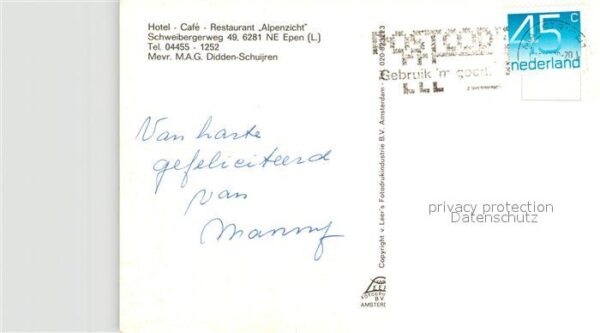 Hotel - Café - Restaurant „Alpenzicht"
Schweibergerweg 49, 6281 NE Epen (L.)
Tel. 04455 - 1252
Mevr. M.A.G. Didden-Schuijren
Van harte
gefeliciteerd
van
Manny
Copyright v. Leer's Fotodrukindustrie B.V. Amsterdam -
POSTCODE
Gebruik 'm goed.
45 c
nederland
privacy protection
Datenschutz
B.V.